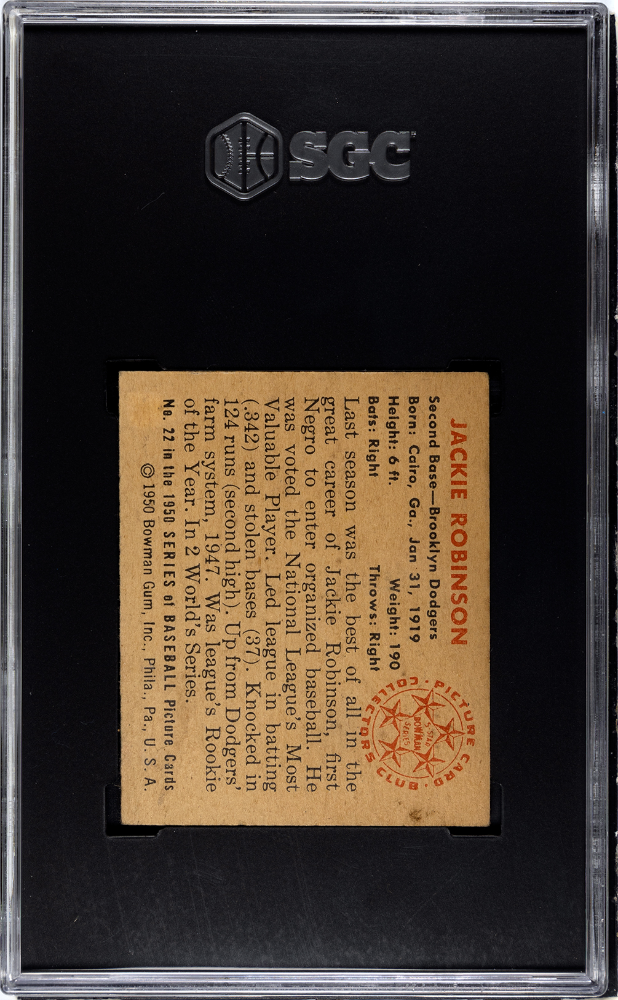 SGC
JACKIE ROBINSON
Second Base—Brooklyn Dodgers
Born: Cairo, Ga., Jan 31, 1919
Height: 6 ft. Weight: 190
Bats: Right Throws: Right
PICTURE CARD
COLLECTORS CLUB
5-STAR
BOWMAN
SERIES
Last season was the best of all in the
great career of Jackie Robinson, first
Negro to enter organized baseball. He
was voted the National League's Most
Valuable Player. Led league in batting
(.342) and stolen bases (37). Knocked in
124 runs (second high). Up from Dodgers'
farm system, 1947. Was league's Rookie
of the Year. In 2 World's Series.
No. 22 in the 1950 SERIES of BASEBALL Picture Cards
© 1950 Bowman Gum, Inc., Phila., Pa., U. S. A.